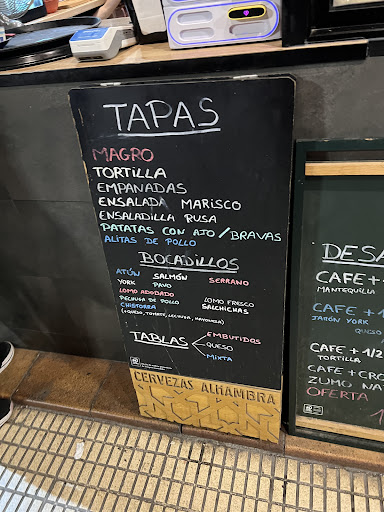 TAPAS
MAGRO
TORTILLA
EMPANADAS
ENSALADA MARISCO
ENSALADILLA RUSA
PATATAS CON AJO / BRAVAS
ALITAS DE POLLO
BOCADILLOS
ATÚN SALMÓN SERRANO
YORK PAVO
LOMO ADOBADO
PECHUGA DE POLLO LOMO FRESCO
CHISTORRA SALCHICHAS
(QUESO, TOMATE, LECHUGA, MAYONESA)
TABLAS EMBUTIDOS
QUESO
MIXTA
CERVEZAS ALHAMBRA
DESA
CAFE +
MANTEQUILLA
CAFE +
JAMÓN YORK
QUESO
CAFE + 1/2
TORTILLA
CAFE + CRO
ZUMO NA
OFERTA